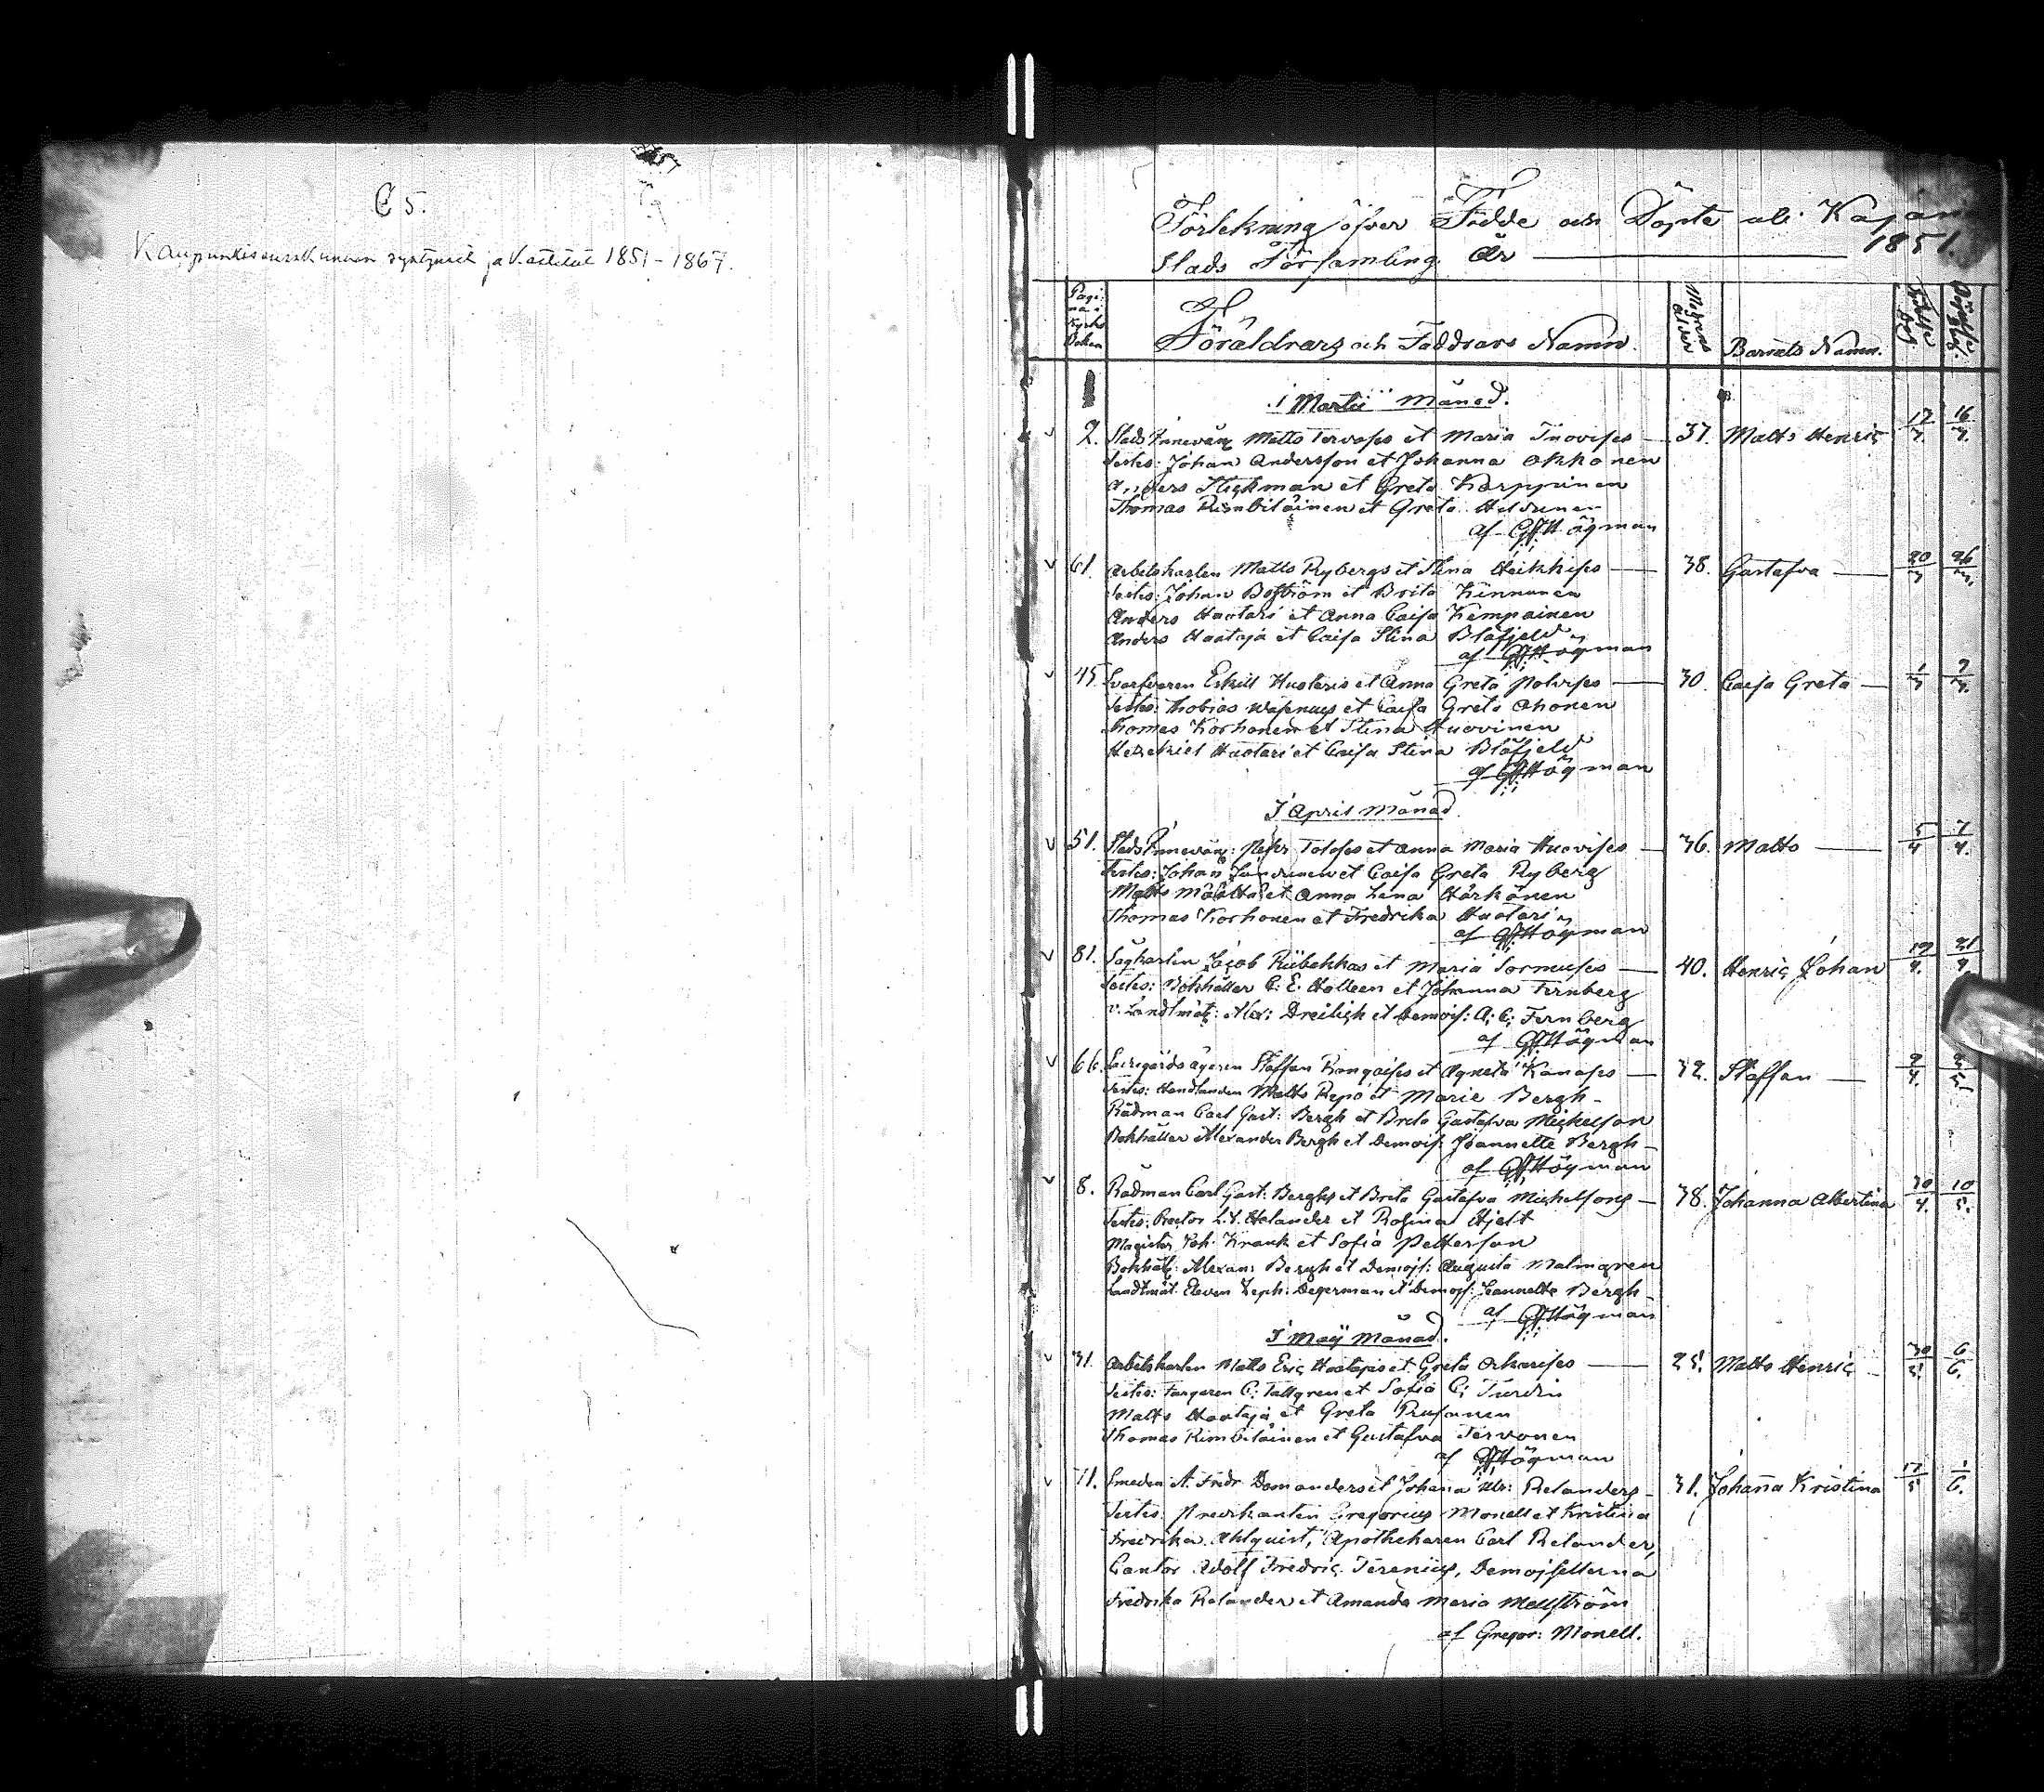 C 5.
Kaupunkiseurakunnan syntyneet ja kastetut 1851-1867.
Förtekning öfver Födde och Döpte uti Kajana
Stads Församling År 1851.
Pagina i Kyrko Boken
Föräldrars och Faddrars Namn.
Modrens ålder
Barnets Namn.
Födelse dag
i Martii månad.
2. Stads Innevån: Matts Tervoses et Maria 37. Matts Henric 12/3. 16/3.
Testes: Johan Andersson et Johanna Okkonen
Anders Stickman et Greta Karppinen
Thomas Rimbiläinen et Greta
af Högman
61. Arbetskarlen Matts Rybergs et Stina Heikkises 38. Gustafva 20/3 26/3.
Testes: Johan Boström et Brita Kinnunen
Anders Huotari et Anna Caisa Kempainen
Anders Haataja et Caisa Stina Blåfjeld
af Högman
45. Svarfvaren Eskill Huotaris et Anna Greta Polvises 30. Caisa Greta 1/3 7/3.
Testes: Thobias Wasenius et Caisa Greta Ahonen
Thomas Korhonen et Stina Huovinen
Hezekiel Huotari et Caisa Stina Blåfjeld
af Högman
I April månad
51. Stads Innevån: Petr Toloses et Anna Maria Huovises 36. Matts 5/4 7/4.
Testes: Johan et Caisa Greta Ryberg
Matts Määttä et Anna Lena Härkönen
Thomas Korhonen et Fredrika Huotari
af Högman
81. Sågkarlen Jacob et Maria Sormuses 40. Henric Johan 12/4. 21/4.
Testes: Bokhåller C: E: Holleen et Johanna Fernberg
v. Landtmät: Alex: Dreilick et Demois: A: C: Fernberg
af Högman
66. Staffan Kongaises et Agneta Kanases 32. Staffan 2/4. 2/5
Testes: Handlanden Matts Repo et Marie Bergh
Rådman Carl Gust: Bergh et Breta Gustafva Michelson
Bokhåller Alexander Bergh et Demois: Jeannette Bergh
af Högman
8. Rådman Carl Gust: Berghs et Breta Gustafva Michelsons 38. Johanna Albertina 30/4. 10/5.
Testes: Rector L. I. Helander et Rosina Hjelt
Magister Joh: Krank et Sofia Petterson
Bokhål: Alexan: Bergh et Demois: Augusta Malmgren
Landtmät. Eleven Zeph: Degerman et Demois: Jeannette Bergh
af Högman
I Maij månad.
31. Arbetskarlen Matts Eric Haatajas et Greta 25. Matts Henric 30/5. 6/6.
Testes: Fargaren C: Tallgren et Sofia C:
Matts Haataja et Greta
Thomas Rimbiläinen et Gustafva Tervonen
af Högman
71. Smeden A. Fredr Domanders et Johana Ulr: Relanders 31. Johana Kristina 17/5 1/6.
Testes: Predikanten Gregorius Monell et Kristina
Fredrika Ahlquist, Apothekaren Carl Relander,
Cantor Adolf Fredric Terenius, Demoisellerna
Fredrika Relander et Amanda Maria Mellström
af Gregor: Monell.